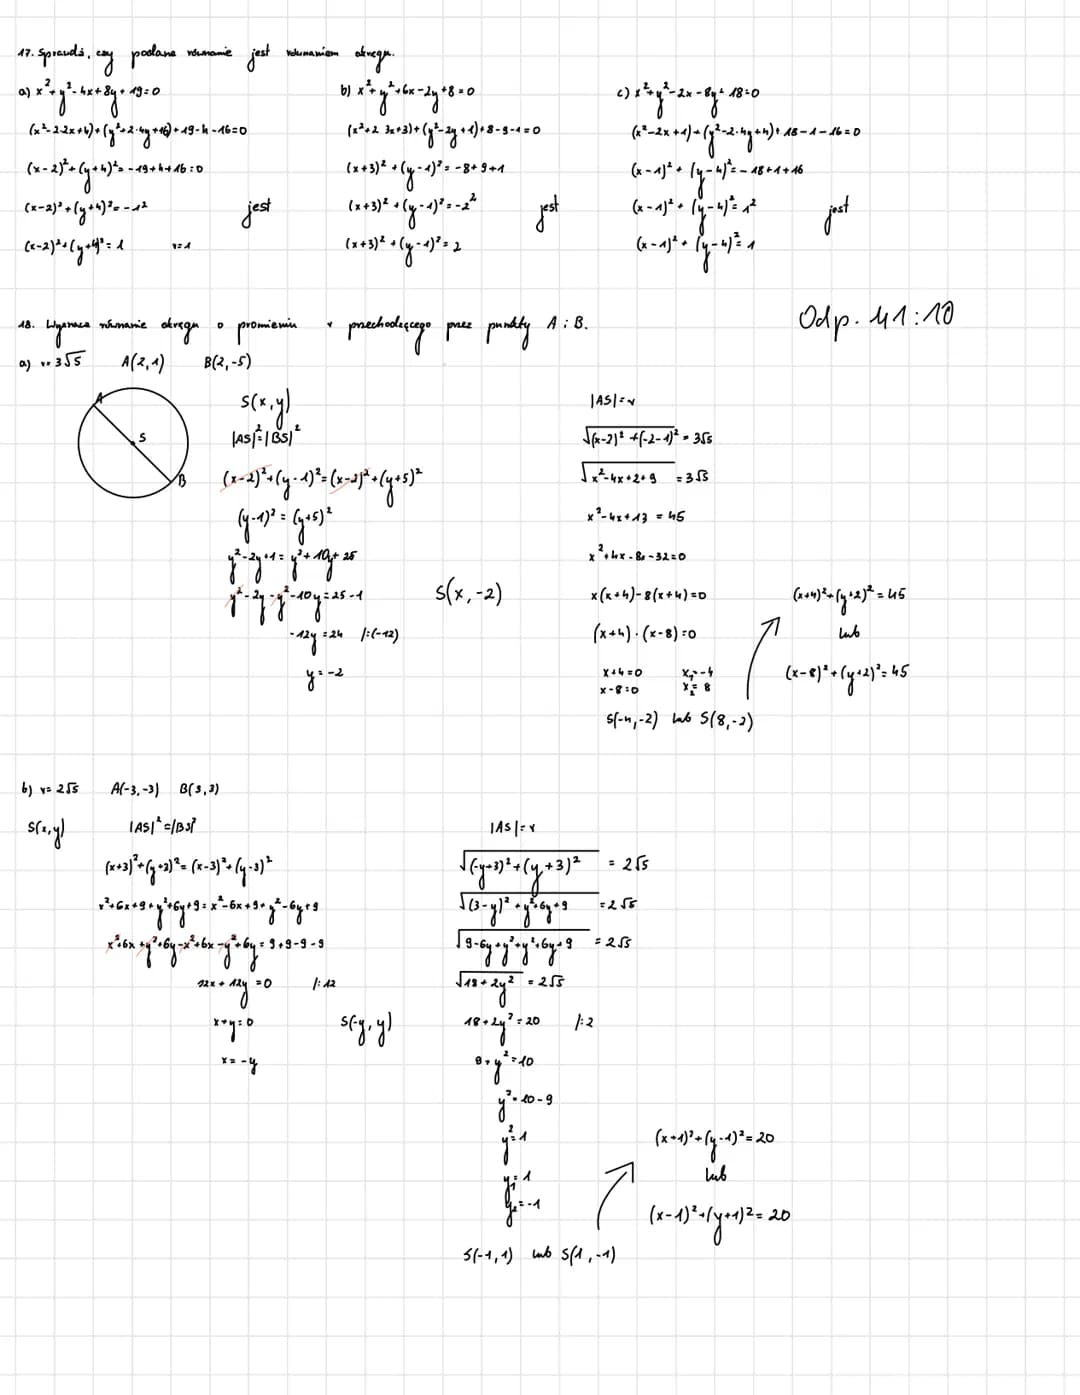 17. Sprawdź, czy podane równanie jest równaniem okręgu.
a) x²+y²-4x+8y+19=0
(x²-2·2x+4)+(y²+2·4y+16)+19-4-16=0
(x-2)²+(y+4)²=-19+4+16=0
(x-2)²+(y+4)²=-1²
jest
(x-2)²+(y+4)²=1 r=1
b) x²+y²+6x-2y+8=0
(x²+2 3x+3)+(y²-2y+1)+8-9-1=0
(x+3)²+(y-1)²=-8+9+1
(x+3)²+(y-1)²=-2²
jest
(x+3)²+(y-1)²=2
c) x²+y²-2x-8y+18=0
(x²-2x+1)+(y²-2·4y+4)+18-1-16=0
(x-1)²+(y-4)²=-18+1+16
(x-1)²+(y-4)²=1²
jest
(x-1)²+(y-4)²=1
18. Wyznacz równanie okręgu o promieniu r przechodzącego przez punkty A i B.
Odp. 41:10
a) r=3√5 A(2,1) B(2,-5)
A
S
B
S(x,y)
|AS|²=|BS|²
(x-2)²+(y-1)²=(x-2)²+(y+5)²
(y-1)²=(y+5)²
y²-2y+1=y²+10y+25
y²-2y-y²-10y=25-1
-12y=24 /:(-12)
y=-2
S(x,-2)
|AS|=r
√(x-2)²+(-2-1)²=3√5
√x²-4x+2+9=3√5
x²-4x+13=45
x²+4x-8x-32=0
x(x+4)-8(x+4)=0
(x+4)·(x-8)=0
x+4=0 x₁=-4
x-8=0 x₂=8
S(-4,-2) lub S(8,-2)
(x+4)²+(y+2)²=45
lub
(x-8)²+(y+2)²=45
b) r=2√5 A(-3,-3) B(3,3)
S(x,y) |AS|²=|BS|²
(x+3)²+(y+3)²=(x-3)²+(y-3)²
x²+6x+9+y²+6y+9=x²-6x+9+y²-6y+9
x²+6x+y²+6y-x²+6x-y²+6y=9+9-9-9
12x+12y=0 /:12
x+y=0
x=-y
S(-y,y)
|AS|=r
√(-y+3)²+(y+3)²=2√5
√(3-y)²+y²+6y+9=2√5
√9-6y+y²+y²+6y+9=2√5
√18+2y²=2√5
18+2y²=20 /:2
9+y²=10
y²=10-9
y²=1
y₁=1
y₂=-1
S(-1,1) lub S(1,-1)
(x+1)²+(y-1)²=20
lub
(x-1)²+(y+1)²=20